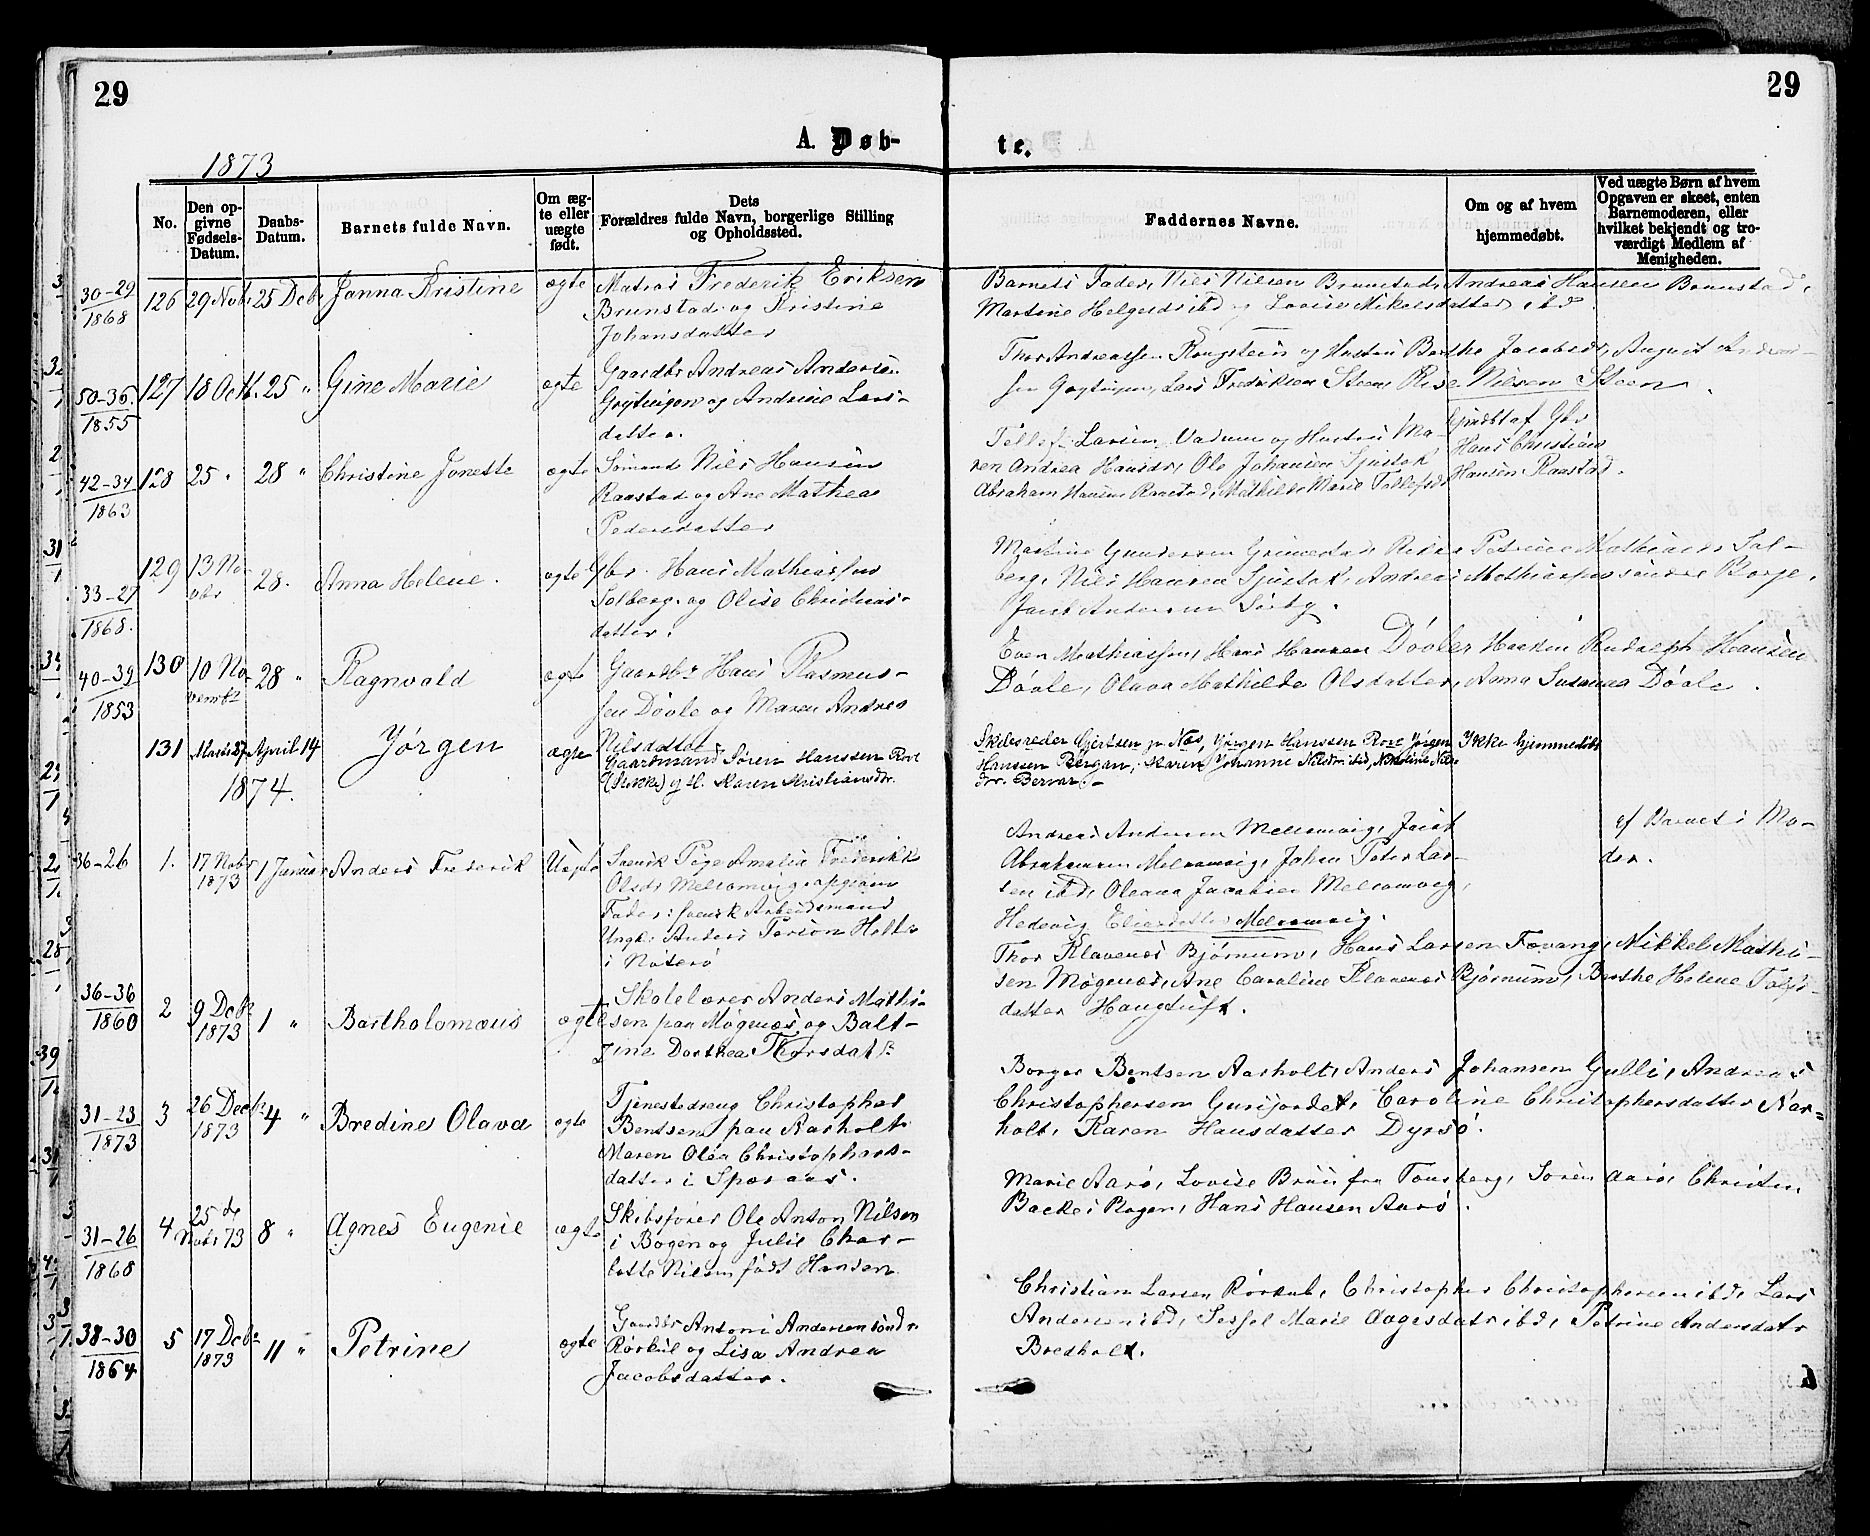 29
29
A. Døb-
te.
1873
No.
Den opgivne Fødsels-Datum.
Daabs-Datum.
Barnets fulde Navn.
Om ægte eller uægte født.
Dets
Forældres fulde Navn, borgerlige Stilling
og Opholdssted.
Faddernes Navne.
Om og af hvem
hjemmedøbt.
Ved uægte Børn af hvem
Opgaven er skeet, enten
Barnemoderen, eller
hvilket bekjendt og tro-
værdigt Medlem af
Menigheden.
30-29
1868
126 29 Nvbr 25 Dcbr Janna Kristine ægte
Matros Frederik Eriksen
Brunstad og Kristine
Johansdatter
Barnets Fader, Nils Nilsen Brunstad, Andreas Hansen Brunstad,
Martine Helgesdr ibd og Lovise Nikolsdatter, ibd
50-36
1855
127 18 Octb. 25 " Gine Marie ægte
Gaardbr Andreas Anderse
Grytingen og Andrine Lars-
datter.
Thor Andreassen Rougsteen og Hustru Berthe Jacobsdr, August Andrea-
sen Grytingen, Lars Fredriksen Steen, Nilsen Steen
42-34
1863
128 25 " 28 " Christine Jonette ægte
Sømand Nils Hansen
Raastad og Ane Mathea
Pedersdatter
Tellef Larsen Vadum og Hustru Ma-
ren Andrea Hansdr, Ole Johansen Sjustok
Abraham Hansen Raastad, Mathilde Marie Tellefsdr
Gjmdbt af Gbr
Hans Christian
Hansen Raastad.
33-27
1868.
129 13 No-
vbr 28. Anna Helene. ægte
Gbr. Hans Mathiassen
Solberg. og Olise Christians-
datter.
Martine Gundersen Grimestad, Petrine Mathiasdr Sol-
berg, Nils Hansen Sjustok, Andreas Mathiassen søndre Borge,
Jacob Andersen Sørby.
40-39
1853
130 10 No-
vembr 28 " Ragnvald ægte
Gaardbr Hans Rasmus-
sen Døole og Maren Andrea
Nilsdatter
Even Mathiassen, Hans Hansen Døole, Haakin Rudolph Hansen
Døole, Olava Mathilde Olsdatter, Anna Susanna Døole.
131 Marts 27 April 14 Jørgen ægte
Gaardmand Søren Hanssen Rove
og H. Karen Kristiansdr.
Skibsreder Gjertsen p. Nes, Jørgen Hanssen Rove, Jørgen
Hanssen Bergan, Karen Johanne Nilsdr ibid, Nikoline Nils
dr. Bervar.-
Ikke hjemmedöbt
1874.
36-26
1. 17 Nvbr
1873 1 Januar Anders Frederik Uægte
Svensk Pige Amalia Frederikke
Olsdr Melsomvig opgiven
Fader: svensk Arbeidsmand
Ungk: Anders Person Holt
i Nøterø
Andreas Andersen Melsomvig, Jacob
Abrahamsen Melsomvig, Johan Peter Lar-
sen ibd, Oleana Jacobsen Melsomvig,
Hedevig Eliasdatter Melsomvig.
af Barnets Mo-
der.
36-36
1860
2 9 Dcbr
1873 1 " Bartholomæus ægte
Skolelærer Anders Mathi-
sen paa Møgenæs og Balt-
zine Dorthea Thorsdatr
Thor Klavenæs Bjørnum, Hans Larsen Fævang, Nikkel Mathi-
sen Møgenæs, Ane Caroline Klavenæs Bjørnum, Berthe Helene
datter Haugtuft.
31-23
1873
3 26 Decbr
1873 4 " Bredine Olava ægte
Tjenestedreng Christopher
Bentsen paa Aarholt
Maren Olea Christophers-
datter i Sporaas.
Borger Bentsen Aarholt, Anders Johansen Gulli, Andreas
Christophersen Gurijordet, Caroline Christophersdatter Aar=
holt, Karen Hansdatter Dyrsø.
31-26
1868
4 25 de
Nvbr 73 8 " Agnes Eugenie ægte
Skibsfører Ole Anton Nilsen
i Bogen og Julie Char-
lotte Nilsen født Hansen
Marie Aarø, Lovise Bruu fra Tønsberg, Søren Aarø, Christen
Backe i Bogen, Hans Hansen Aarø.
38-30
1864
5 17 Dcbr
1873 11 " Petrine ægte
Gaardbr Antoni Andersen sønd r
Rørkol og Lisa Andrea
Jacobsdatter.
Christian Larsen Rørkol, Christopher Christophersen ibd, Lars
Andersen ibd, Sessel Marie Aagesdatr ibd, Petrine Andersdatr
Bredholt.